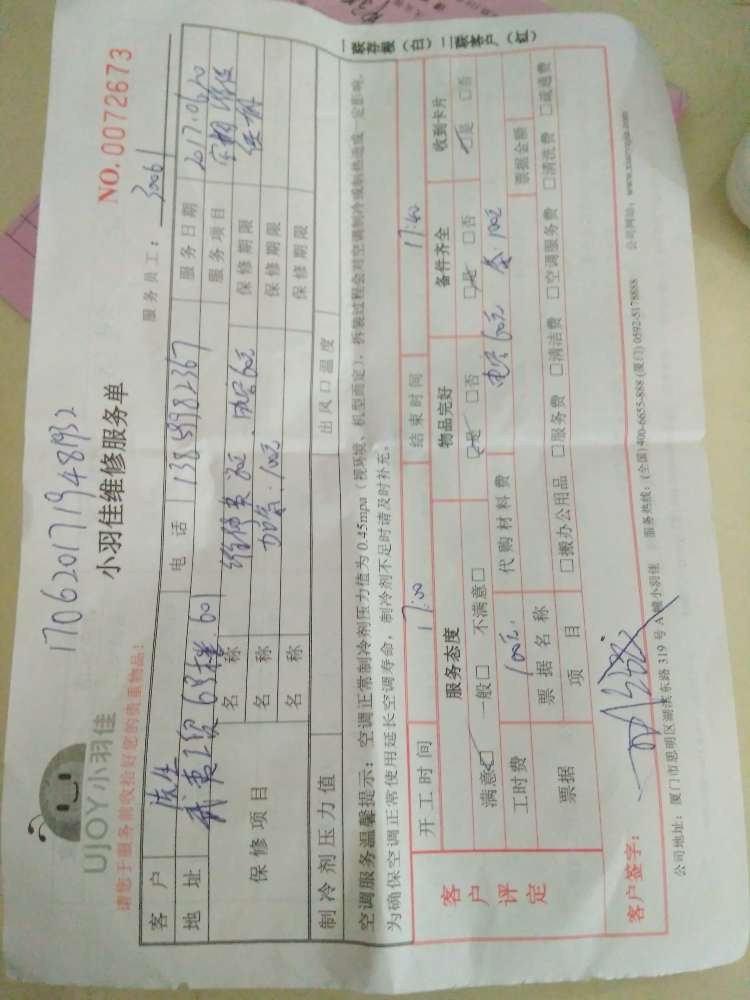 一联存根（白）二联客户（红）
1706201719481932
NO.0072673
UJOY小羽佳
小羽佳维修服务单
服务员工：30061
请您于服务前收拾好您的贵重物品！
客户 先生 电话 13859982367 服务日期 2017.06.20
地址 6号楼 601 服务项目 空调维修
保修项目
名称 维修费 电容60元 保修期限
名称 加氟：100元 保修期限
名称 保修期限
制冷剂压力值 出风口温度
空调服务温馨提示：空调正常制冷剂压力值为0.45mpa（视环境、机型而定），拆装过程会对空调制冷或制热造成一定影响，
为确保空调正常使用延长空调寿命，制冷剂不足时请及时补充。
客户评定
开工时间 17:00 结束时间 17:40
服务态度 物品完好 备件齐全 收到卡片
满意☑ 一般□ 不满意□ ☑是 □否 ☑是 □否 ☑是 □否
工时费 100元 代购材料费 电容60元 100元
票据 票据名称 票据金额
项目 □搬办公用品 □服务费 □清洁费 □空调服务费 □清洗费 □疏通费
客户签字：
公司地址：厦门市思明区湖滨东路319号A幢小羽佳 服务热线：(全国)400-6655-888 (厦门) 0592-5178888 公司网站：